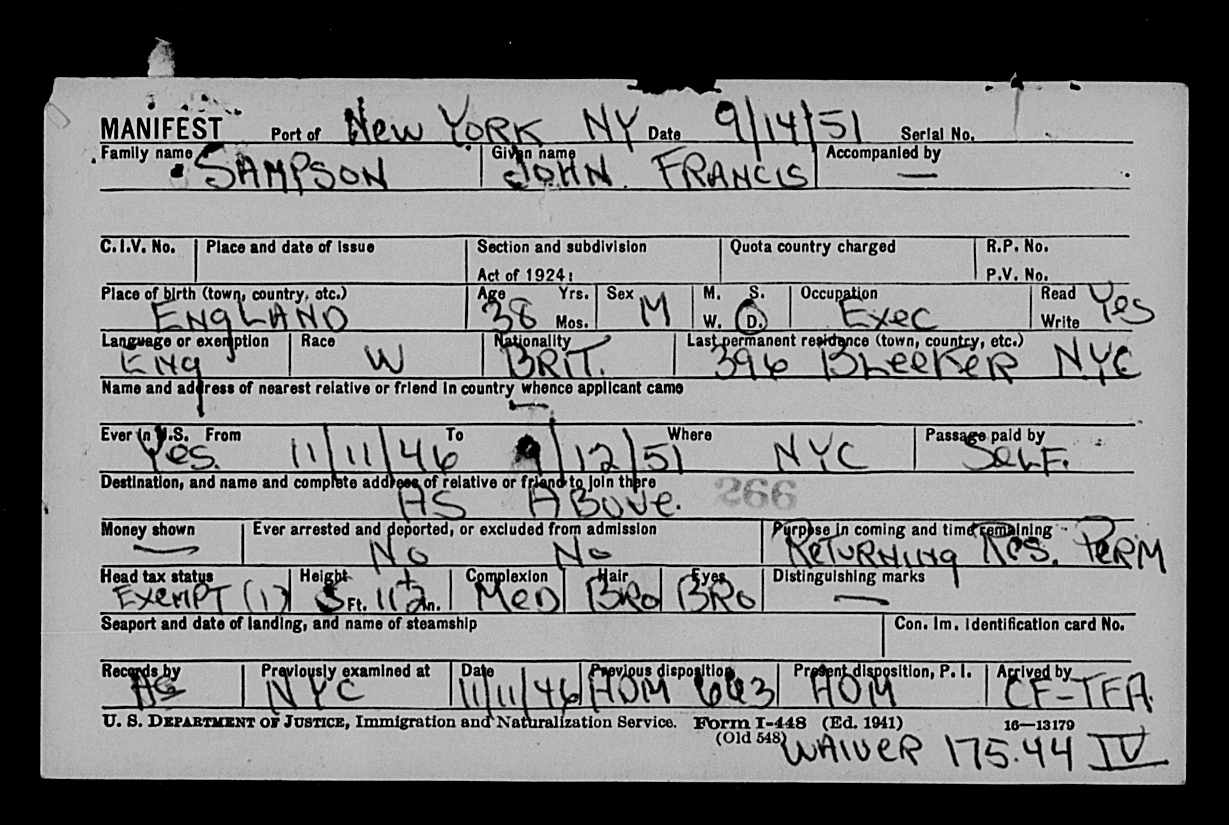 MANIFEST Port of New York NY Date 9/14/51 Serial No.
Family name SAMPSON Given name JOHN FRANCIS Accompanied by —
C.I.V. No. Place and date of issue Section and subdivision Quota country charged R.P. No.
Act of 1924: P.V. No.
Place of birth (town, country, etc.) ENGLAND Age 38 Yrs. Mos. Sex M M. S. W. D. Occupation Exec Read Write Yes
Language or exemption ENG Race W Nationality BRIT. Last permanent residence (town, country, etc.) 396 BLeeKeR NYC
Name and address of nearest relative or friend in country whence applicant came —
Ever in U.S. Yes. From 11/11/46 To 9/12/51 Where NYC Passage paid by SeLF.
Destination, and name and complete address of relative or friend to join there AS ABove. 266
Money shown — Ever arrested and deported, or excluded from admission No No Purpose in coming and time remaining ReTURNING Res. PeRM
Head tax status ExemPT (1) Height 5 Ft. 11 1/2 In. Complexion MeD Hair BRo Eyes BRo Distinguishing marks —
Seaport and date of landing, and name of steamship Con. Im. Identification card No.
Records by AG Previously examined at NYC Date 11/11/46 Previous disposition HOM 663 Present disposition, P. I. HOM Arrived by CF-TFA.
U. S. DEPARTMENT OF JUSTICE, Immigration and Naturalization Service. Form I-448 (Ed. 1941) 16—13179
(Old 548) WAIVeR 175.44 IV